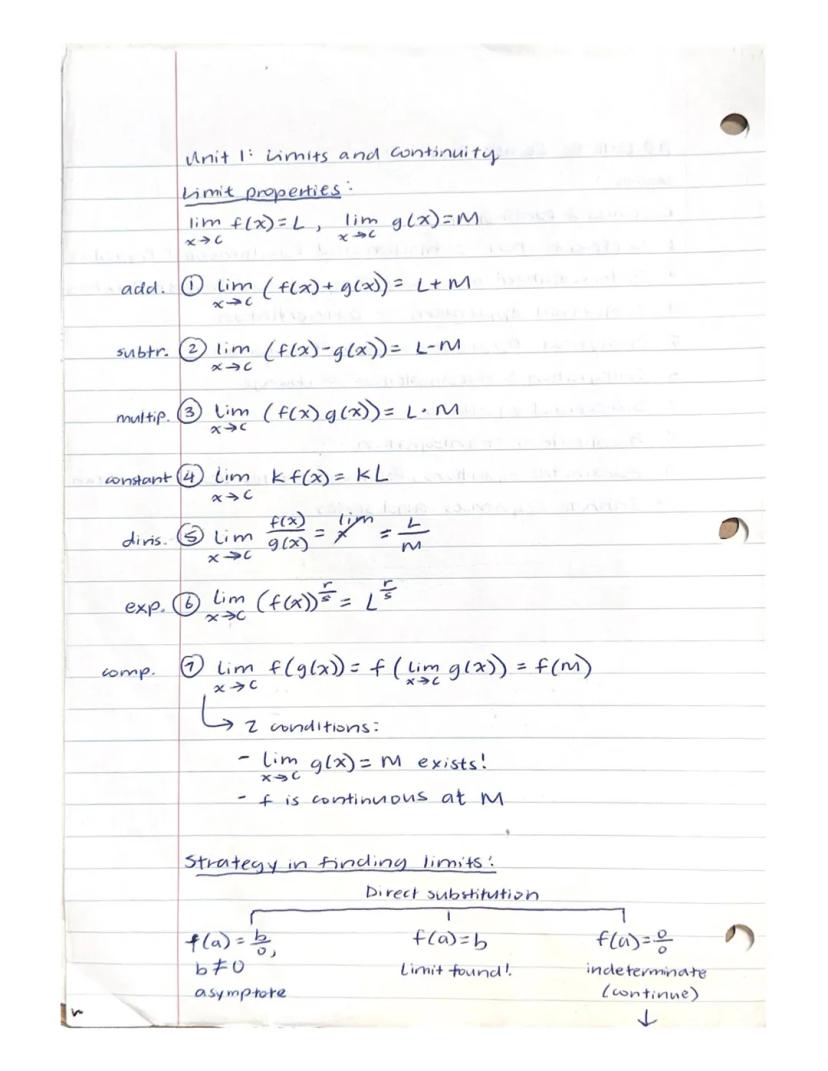 Unit 1: Limits and continuity
Limit properties:
lim x→c f(x)=L, lim x→c g(x)=M
add. ① lim x→c (f(x)+g(x))= L+M
subtr. ② lim x→c (f(x)-g(x))= L-M
multip. ③ lim x→c (f(x)g(x))= L·M
constant ④ lim x→c kf(x)= kL
divis. ⑤ lim x→c f(x)/g(x) = = L/M
exp. ⑥ lim x→c (f(x))^(r/s) = L^(r/s)
comp. ⑦ lim x→c f(g(x))= f(lim x→c g(x)) = f(M)
↳ 2 conditions:
- lim x→c g(x)= M exists!
- f is continuous at M
Strategy in finding limits:
Direct substitution
f(a)= b/0, f(a)=b f(a)= 0/0
b≠0 Limit found! indeterminate
asymptote (continue)
↓